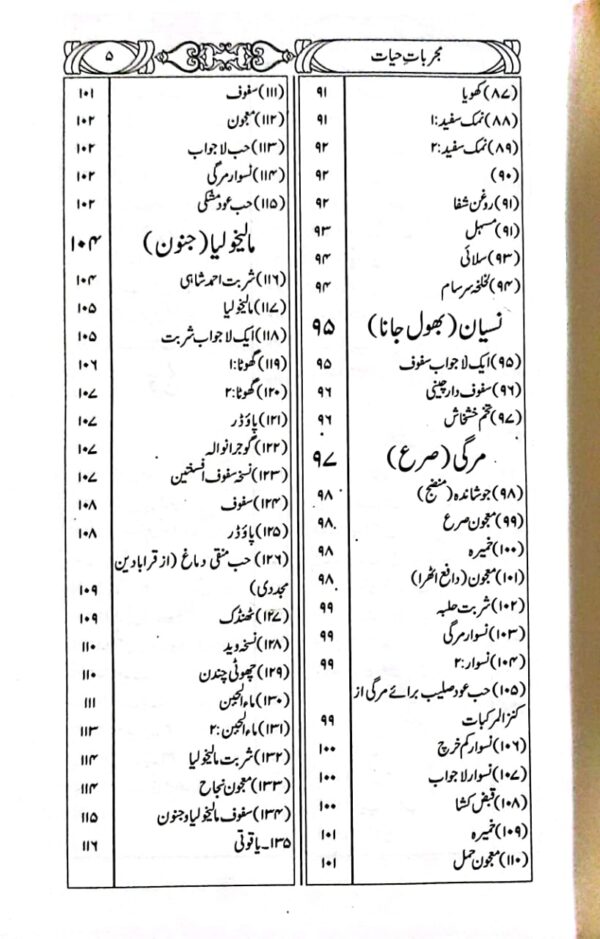 مجربات حیات
۵
(۸۷) کھویا ۹۱
(۸۸) نمک سفید:۱ ۹۱
(۸۹) نمک سفید:۲ ۹۲
(۹۰) ۹۲
(۹۱) روغن شفا ۹۲
(۹۱) مسہل ۹۳
(۹۳) سلائی ۹۴
(۹۴) لخلخہ سرسام ۹۴
نسیان (بھول جانا) ۹۵
(۹۵) ایک لاجواب سفوف ۹۵
(۹۶) سفوف دارچینی ۹۶
(۹۷) تخم خشخاش ۹۶
مرگی (صرع) ۹۷
(۹۸) جوشاندہ (منضج) ۹۸
(۹۹) معجون صرع ۹۸
(۱۰۰) خمیرہ ۹۸
(۱۰۱) معجون (دافع اٹھرا) ۹۸
(۱۰۲) شربت حلبہ ۹۹
(۱۰۳) نسوار مرگی ۹۹
(۱۰۴) نسوار:۲ ۹۹
(۱۰۵) حب عود صلیب برائے مرگی از
کنز المرکبات ۹۹
(۱۰۶) نسوار کم خرچ ۱۰۰
(۱۰۷) نسوار لاجواب ۱۰۰
(۱۰۸) قبض کشا ۱۰۰
(۱۰۹) خمیرہ ۱۰۱
(۱۱۰) معجون حمل ۱۰۱
(۱۱۱) سفوف ۱۰۱
(۱۱۲) معجون ۱۰۲
(۱۱۳) حب لاجواب ۱۰۲
(۱۱۴) نسوار مرگی ۱۰۲
(۱۱۵) حب عود مشکی ۱۰۲
مالیخولیا (جنون) ۱۰۴
(۱۱۶) شربت احمد شاہی ۱۰۴
(۱۱۷) مالیخولیا ۱۰۵
(۱۱۸) ایک لاجواب شربت ۱۰۵
(۱۱۹) گھوٹا:۱ ۱۰۶
(۱۲۰) گھوٹا:۲ ۱۰۷
(۱۲۱) پاؤڈر ۱۰۷
(۱۲۲) گوجرانوالہ ۱۰۷
(۱۲۳) نسخہ سفوف افسنتین ۱۰۷
(۱۲۴) سفوف ۱۰۸
(۱۲۵) پاؤڈر ۱۰۸
(۱۲۶) حب منقی دماغ (از قرابادین
مجددی) ۱۰۹
(۱۲۷) ٹھنڈک ۱۰۹
(۱۲۸) نسخہ وید ۱۱۰
(۱۲۹) چھوٹی چندن ۱۱۰
(۱۳۰) ماء الجبن ۱۱۱
(۱۳۱) ماء الجبن:۲ ۱۱۳
(۱۳۲) شربت مالیخولیا ۱۱۴
(۱۳۳) معجون نجاح ۱۱۴
(۱۳۴) سفوف مالیخولیا و جنون ۱۱۵
۱۳۵۔ یاقوتی ۱۱۶